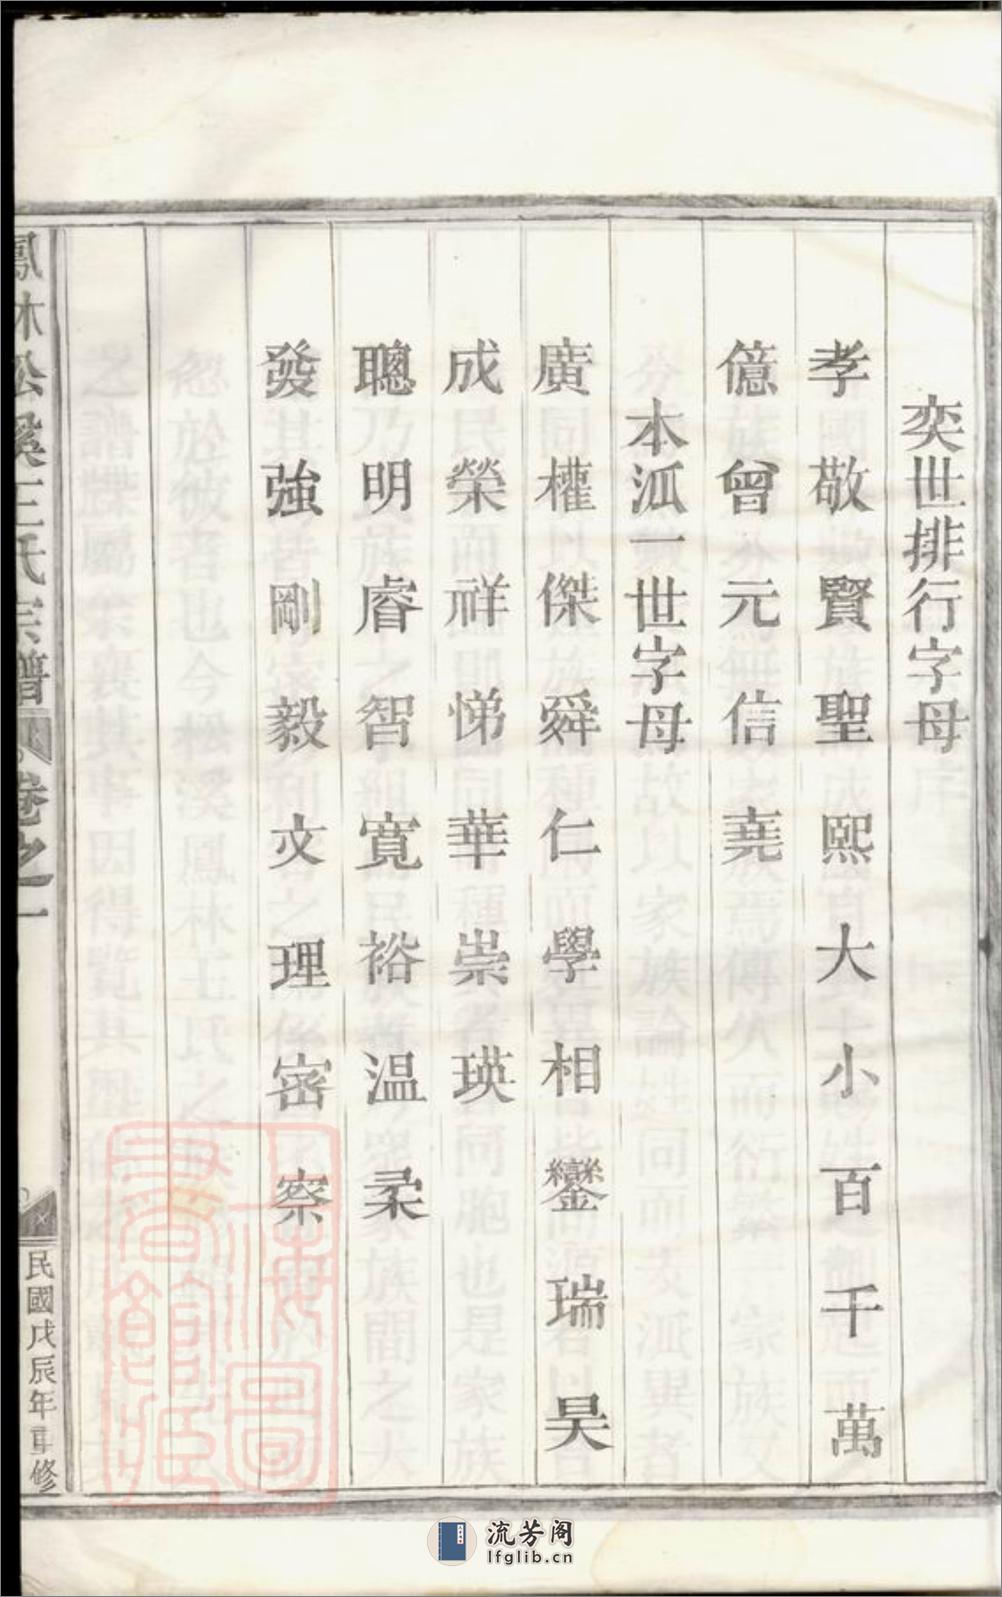 奕世排行字母
孝敬賢聖熙大小百千萬
億曾元信堯
本派一世字母
廣權傑舜仁學相鑾瑞昊
成榮祥悌華崇瑛
聰明睿智寬裕温柔
發強剛毅文理密察
鳳林松溪王氏宗譜
卷之一
民國戊辰年重修
流芳阁
lfglib.cn